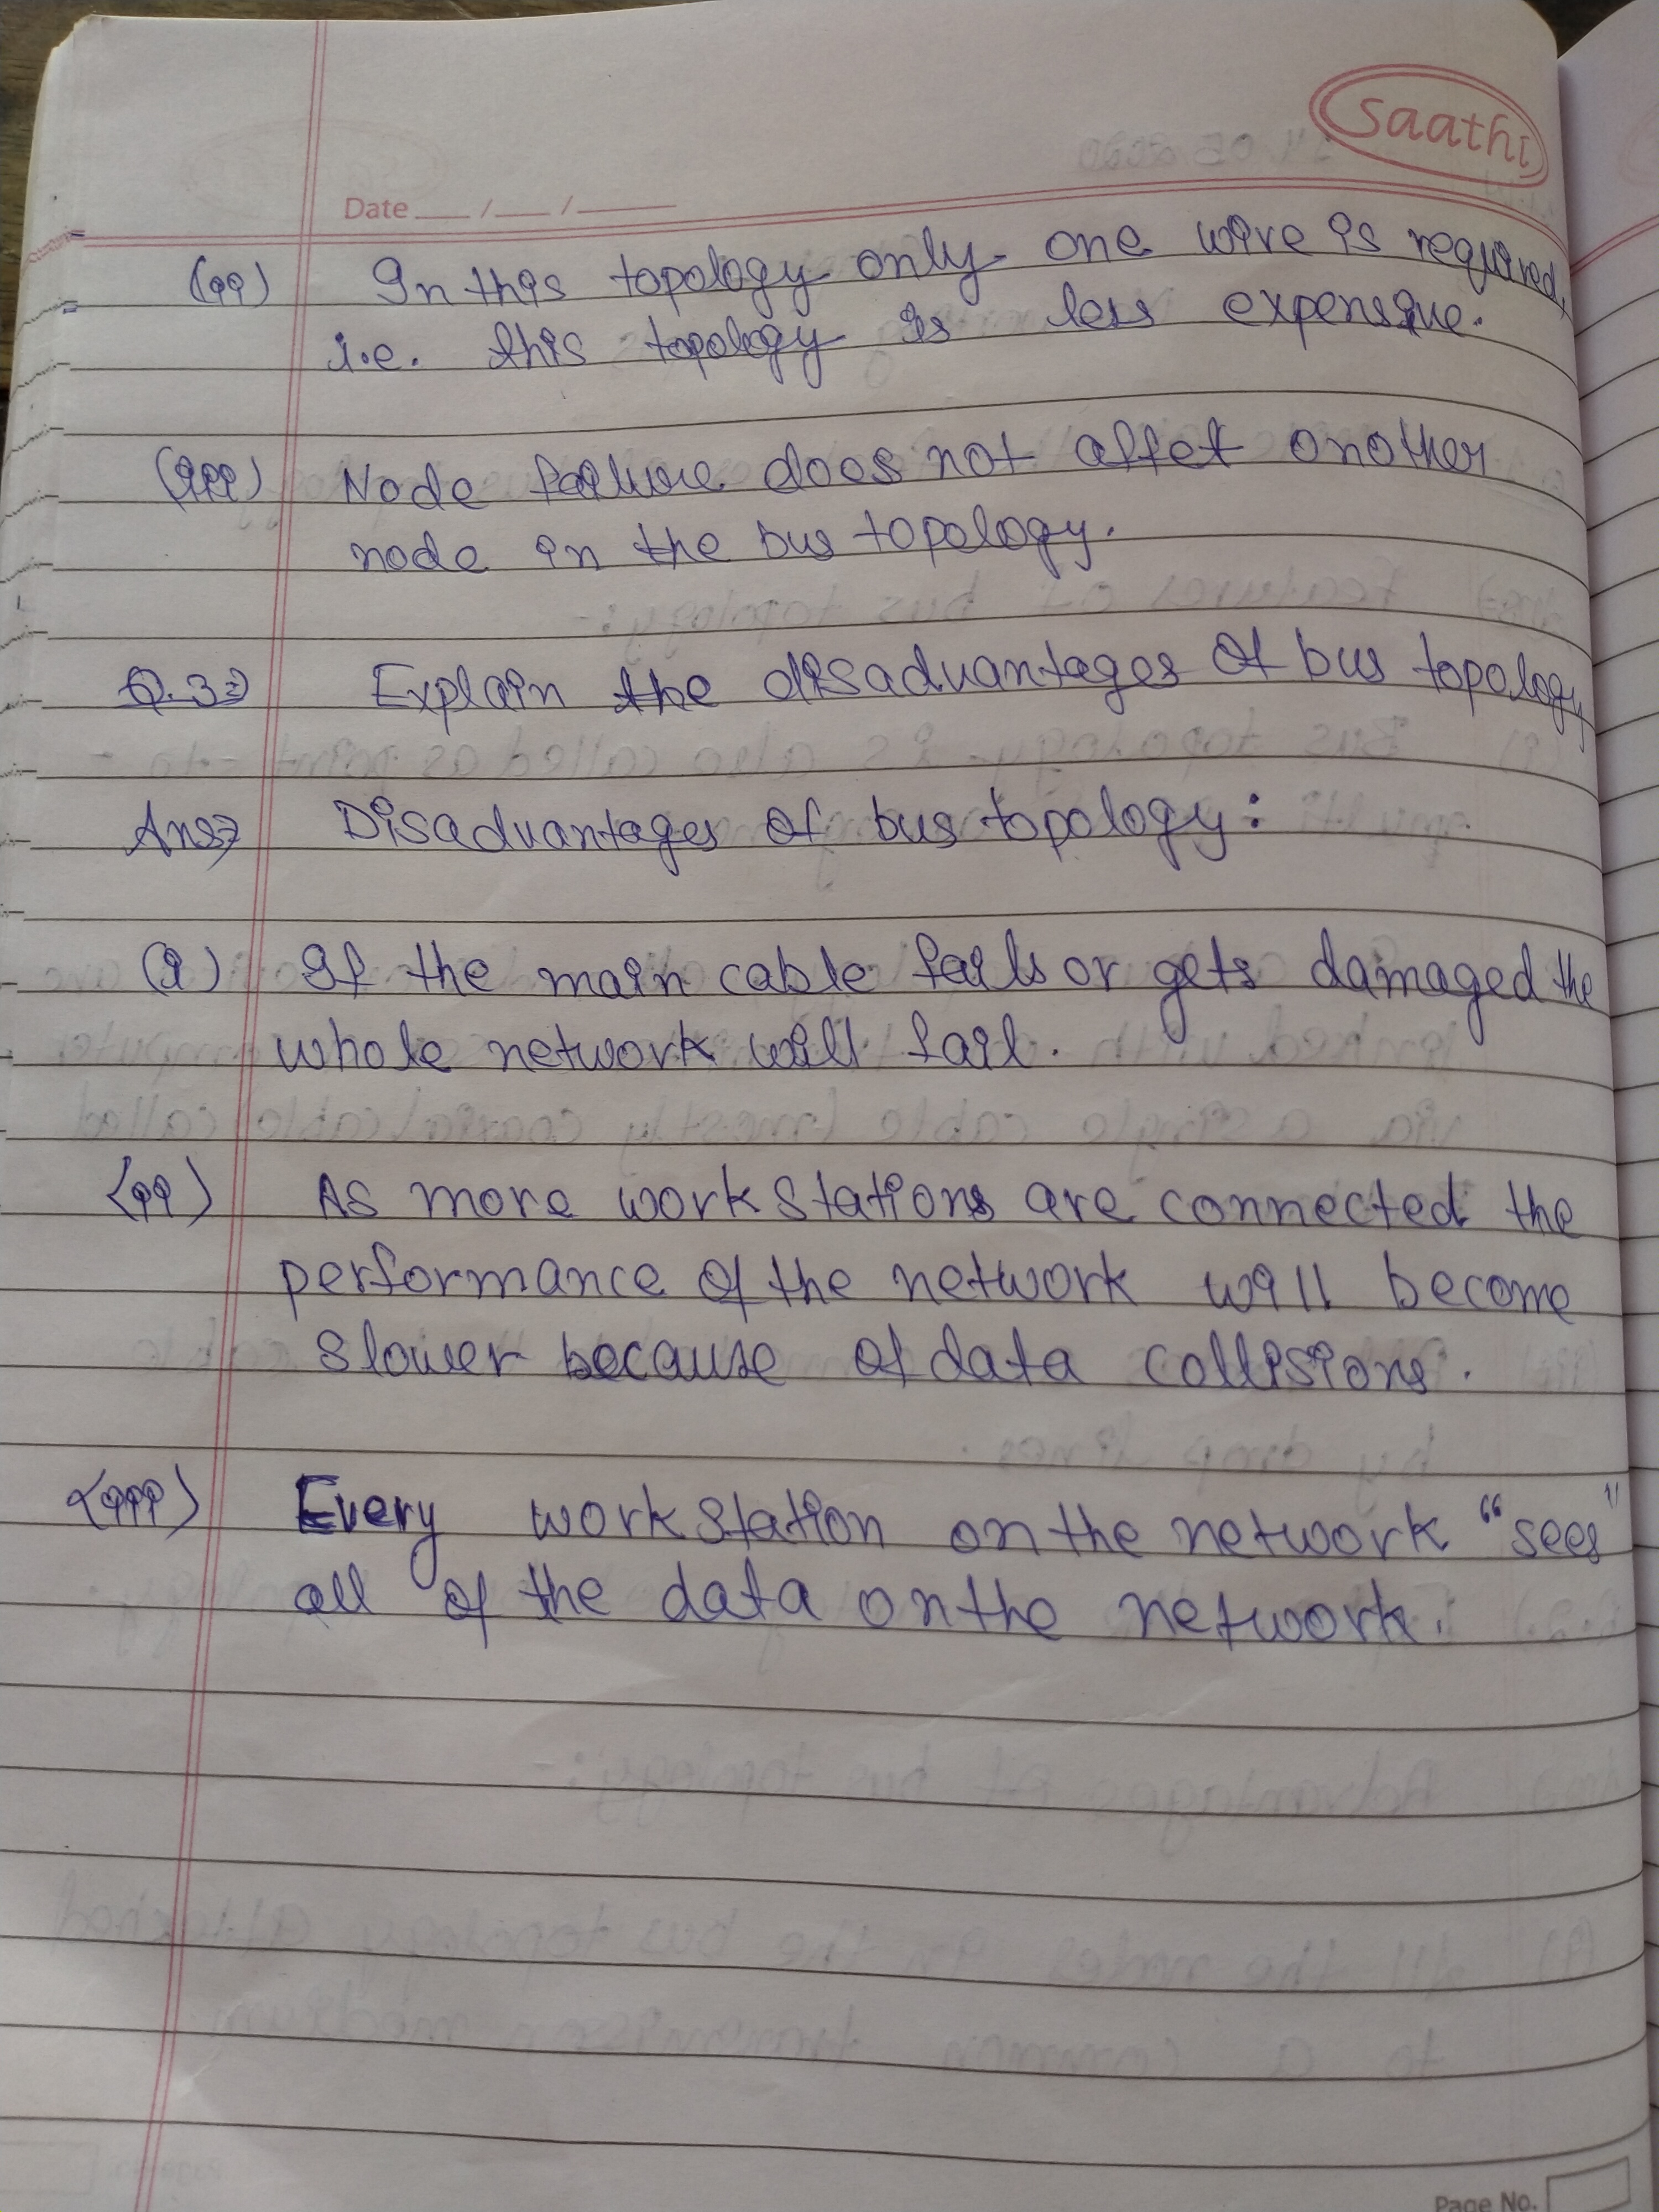 Saathi
Date __/__/____
(ii) In this topology only one wire is required,
i.e. this topology is less expensive.
(iii) Node failure does not affet onother
node in the bus topology.
Q.3⇒ Explain the disadvantages of bus topology
Ans⇒ Disadvantages of bus topology:
(i) If the main cable fails or gets damaged the
whole network will fail.
(ii) As more workstations are connected the
performance of the network will become
slower because of data collisions.
(iii) Every workstation on the network "sees"
all of the data on the network.
Page No.